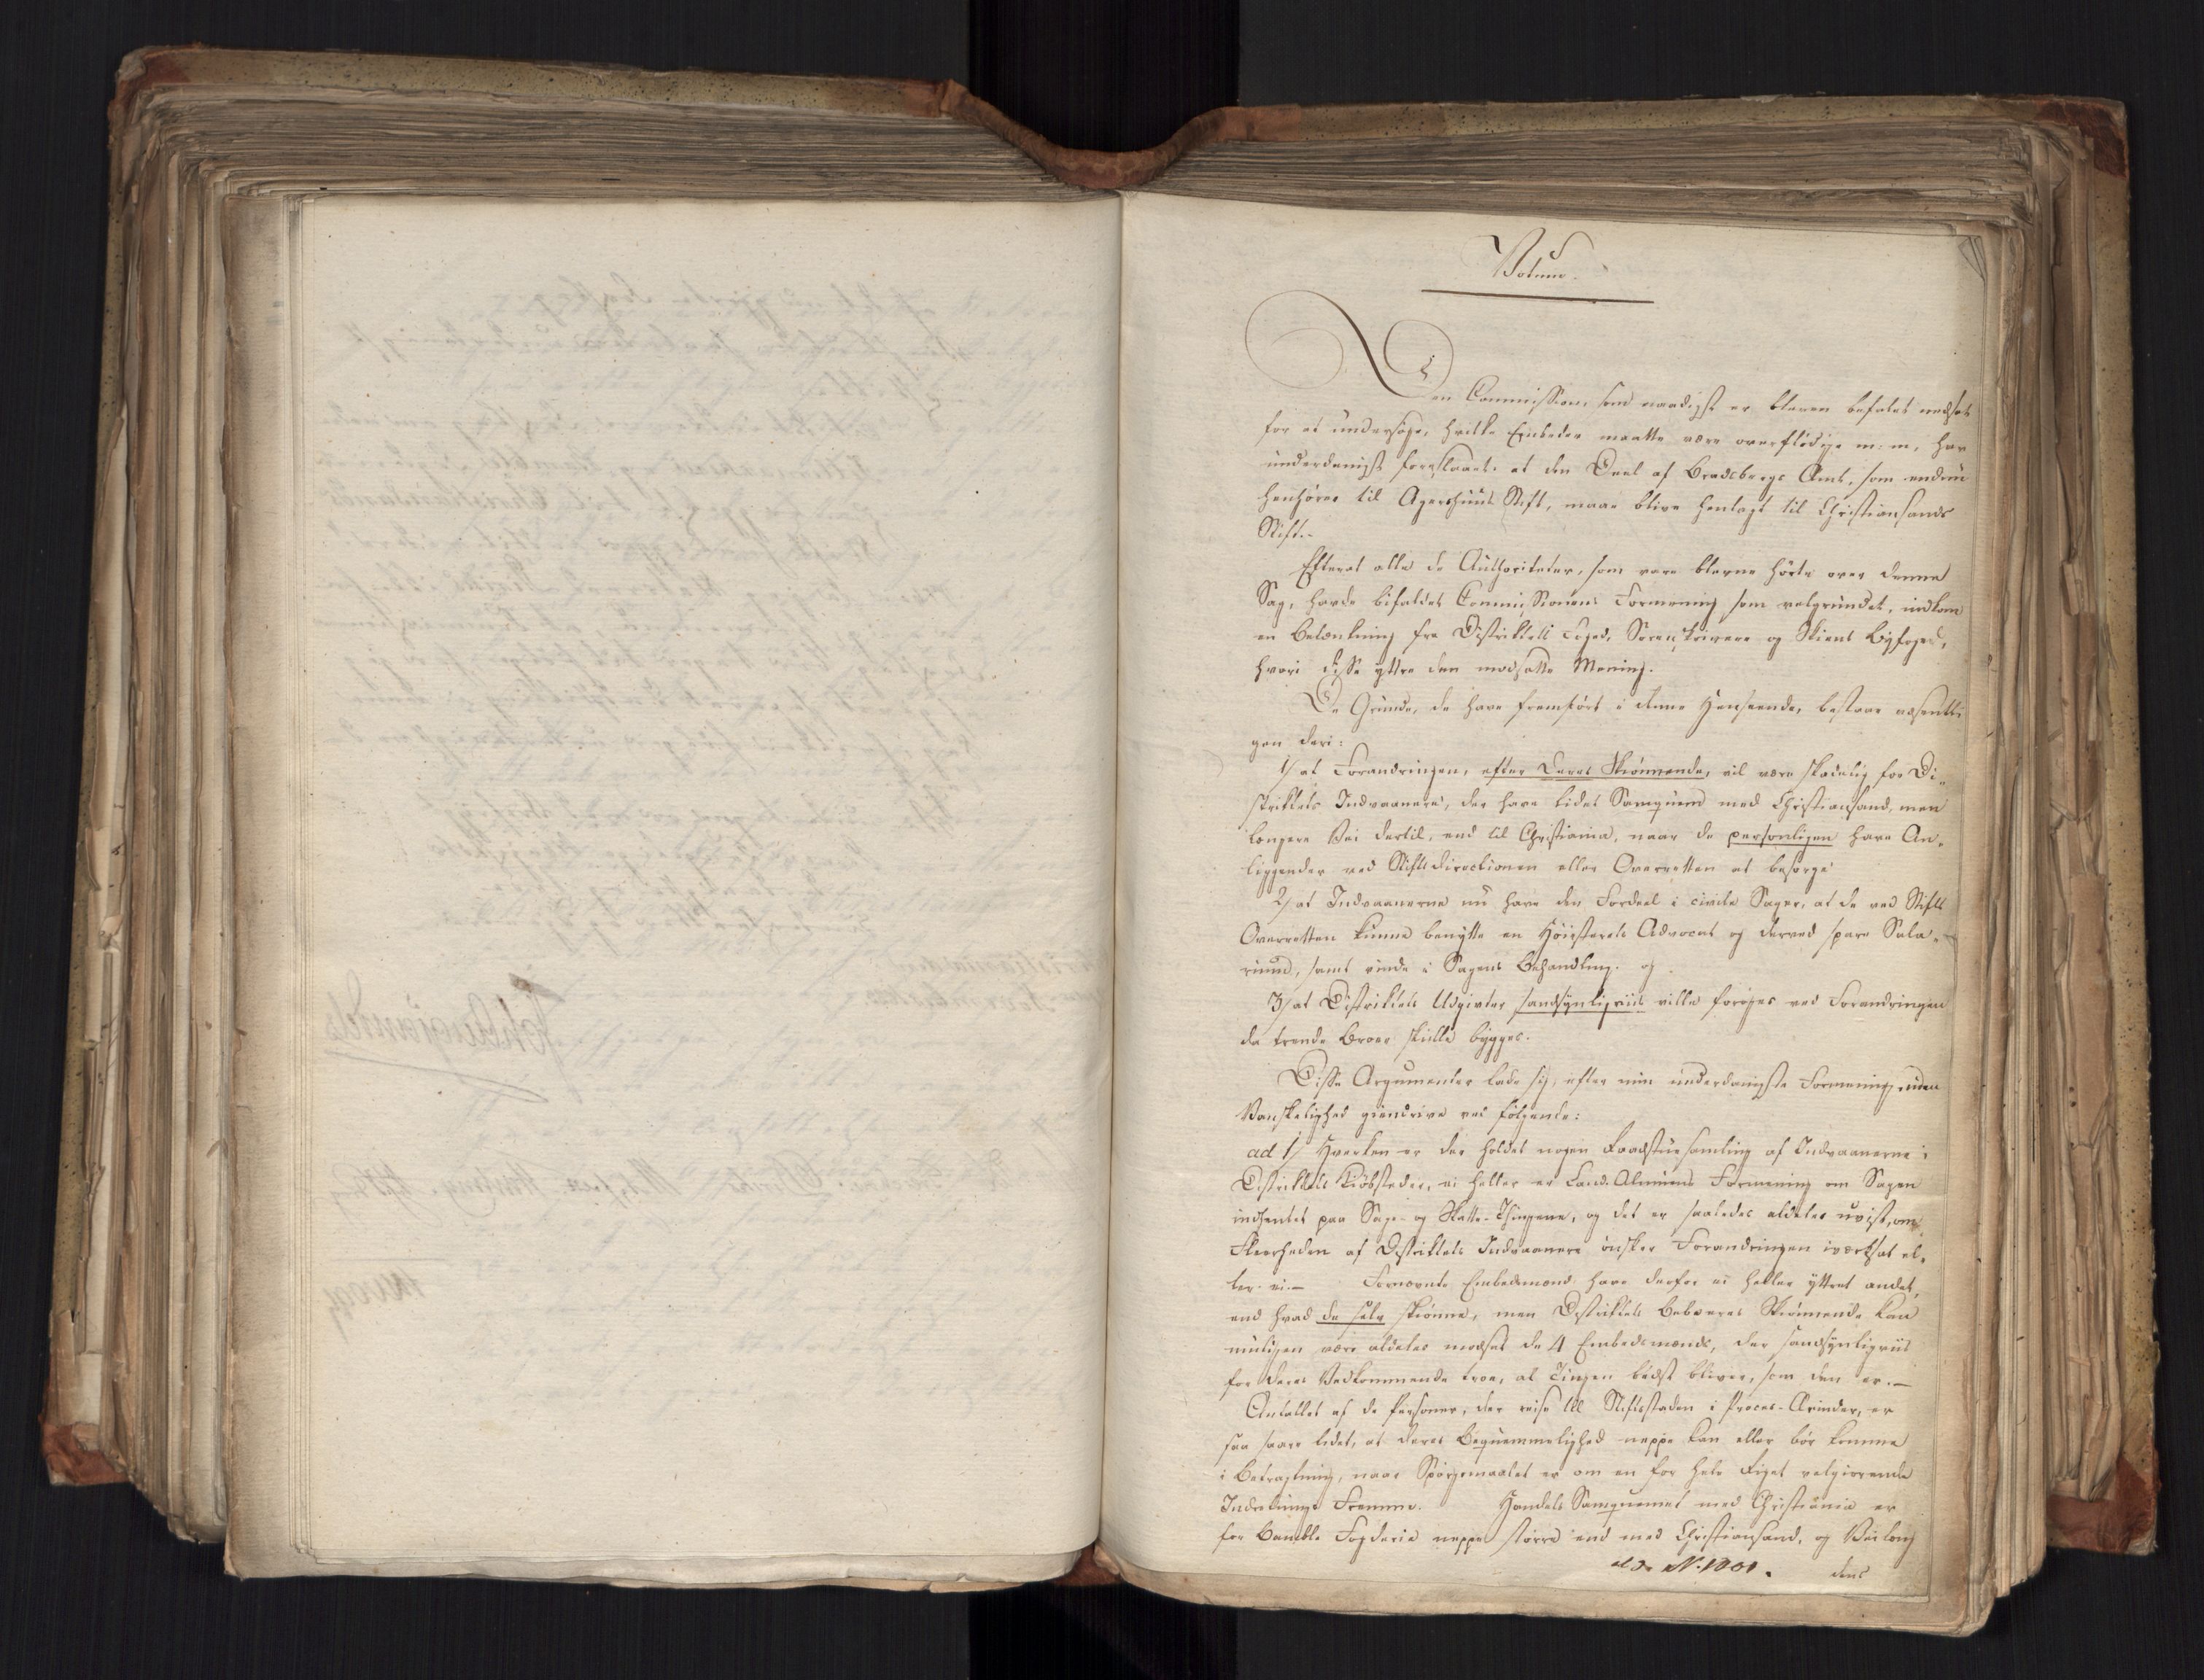 Votum.
Den Commission, som naadigst er bleven befalet nedsat
for at undersøge, hvilke Embeder maatte være overflødige m: m, har
underdanigst foreslaaet: at den Deel af Bradsbergs Amt, som endnu
henhører til Agershuus Stift, maae blive henlagt til Christiansands
Stift.-
Efterat alle de Authoriteter, som vare blevne hørte over denne
Sag, havde bifaldet Commissionens Formening som velgrundet, indkom
en Betænkning fra Distriktets Foged, Sorenskrivere og Skiens Byfoged,
hvori disse yttre den modsatte Mening.
De Grunde, de have fremført i denne Henseende, bestaae væsentli
gen deri:
1/ at Forandringen, efter deres Skiønnende, vil være skadelig for Di-
striktets Indvaanere, der have lidet Samqvem med Christiansand, men
længere Vei dertil, end til Christiania, naar de personligen have An-
liggender ved Stiftsdirectionen eller Overretten at besørge
2/ at Indvaanerne nu have den Fordeel i civile Sager, at de ved Stifts
Overretten kunne benytte en Høiesterets Advocat og derved spare Sala-
rium, samt vinde i Sagens Behandling. og
3/ at Distriktets Udgivter sandsynligviis ville forøges ved Forandringen
da trende Broer skulle bygges.
Disse Argumenter lade sig, efter min underdanigste Formening, uden
Vanskelighed giendrive ved følgende:
ad 1/ Hverken er der holdet nogen Raadstuesamling af Indvaanerne i
Distriktets Kiøbstæder, ei heller er Land-Almuens Formening om Sagen
indhentet paa Sage- og Skatte-Thingene, og det er saaledes aldeles uvist, om
Fleerheden af Distriktets Indvaanere ønsker Forandringen iværksat el-
ler ei.- Fornævnte Embedsmænd have derfor ei heller yttret andet,
end hvad de selv skiønne, men Distriktets Beboeres Skiønnende kan
muligen være aldeles modsat de 4 Embedsmænds, der sandsynligviis
for deres Vedkommende troe, at Tingen bedst bliver, som den er.-
Antallet af de Personer, der reise til Stiftsstaden i Proces-Ærinder, er
saa saare lidet, at deres Beqvemmelighed neppe kan eller bør komme
i Betragtning, naar Spørgsmaalet er om en for hele Riget velgiørende
Indretnings Fremme. Handels Samqvemmet med Christiania er
for Bamble Fogderie neppe større end med Christiansand, og Veilæng
ad N. 1801.
dens